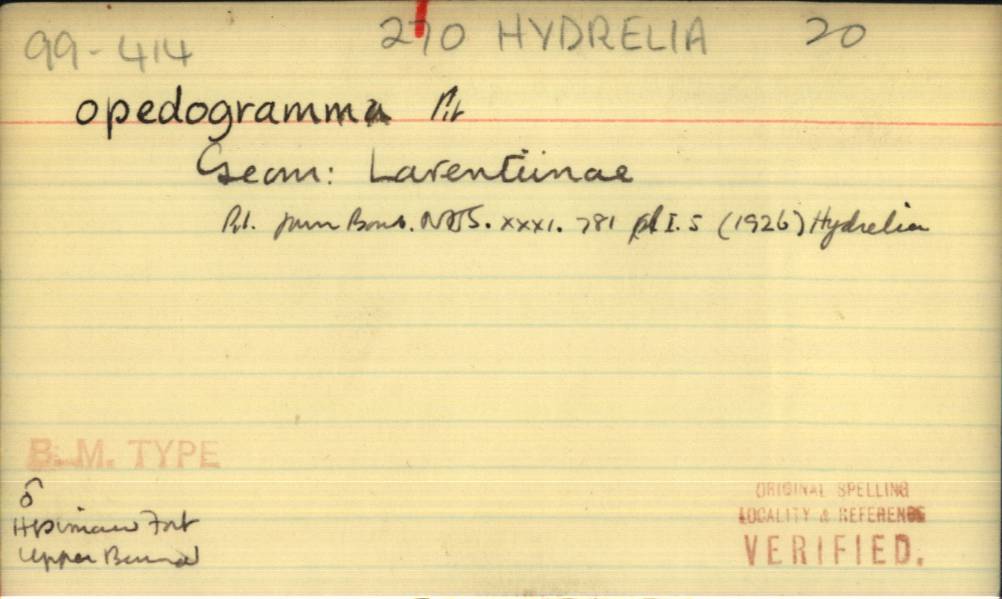 99-414 270 HYDRELIA 20
opedogramma Prt
Geom: Larentiinae
Prt. Journ Bomb. N.H.S. xxxi. 781 pl I. 5 (1926) Hydrelia
B. M. TYPE
♂
Htsimaw Fort
Upper Burma
ORIGINAL SPELLING
LOCALITY & REFERENCE
VERIFIED.